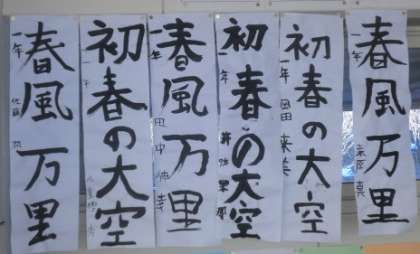 春風万里
一年
初春の大空
一年
春風万里
一年
田中
初春の大空
一年
初春の大空
一年
春風万里
一年